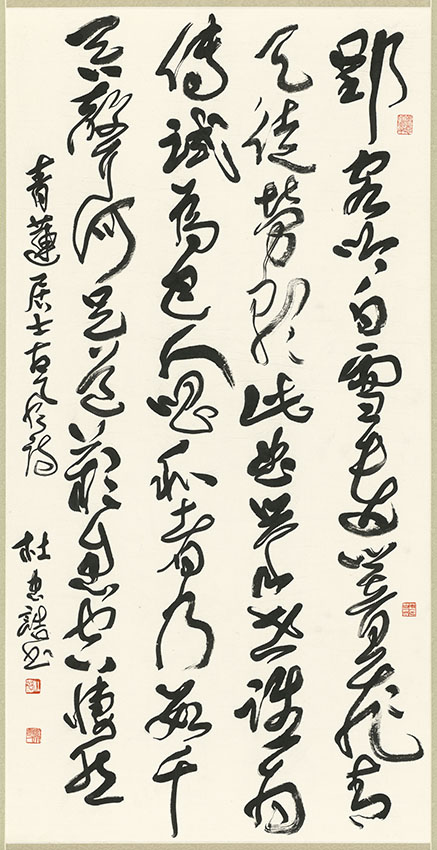 郢客吟白雪遺響飛青
天徒勞歌此曲舉世誰為
傳試為巴人唱和者乃數千
吞聲何足道歎息空悽然
青蓮居士古風詩
杜忠誥書